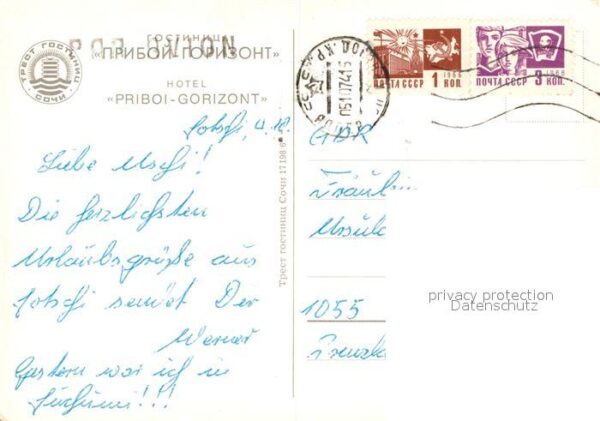 ГОСТИНИЦА
PAR AVION
«ПРИБОЙ-ГОРИЗОНТ»
HOTEL
«PRIBOI-GORIZONT»
ТРЕСТ ГОСТИНИЦ
СОЧИ
1 1966
ПОЧТА СССР КОП.
3 1966
ПОЧТА СССР КОП.
Sotschi, 4.10.
Liebe Uschi!
Die herzlichsten
Urlaubsgrüße aus
Sotschi sendet Dir
Werner
Gestern war ich in
Suchumi!!!
Трест гостиниц Сочи 17198 6
GDR
Fräulein
Ursula
1055
Prenzla
privacy protection
Datenschutz